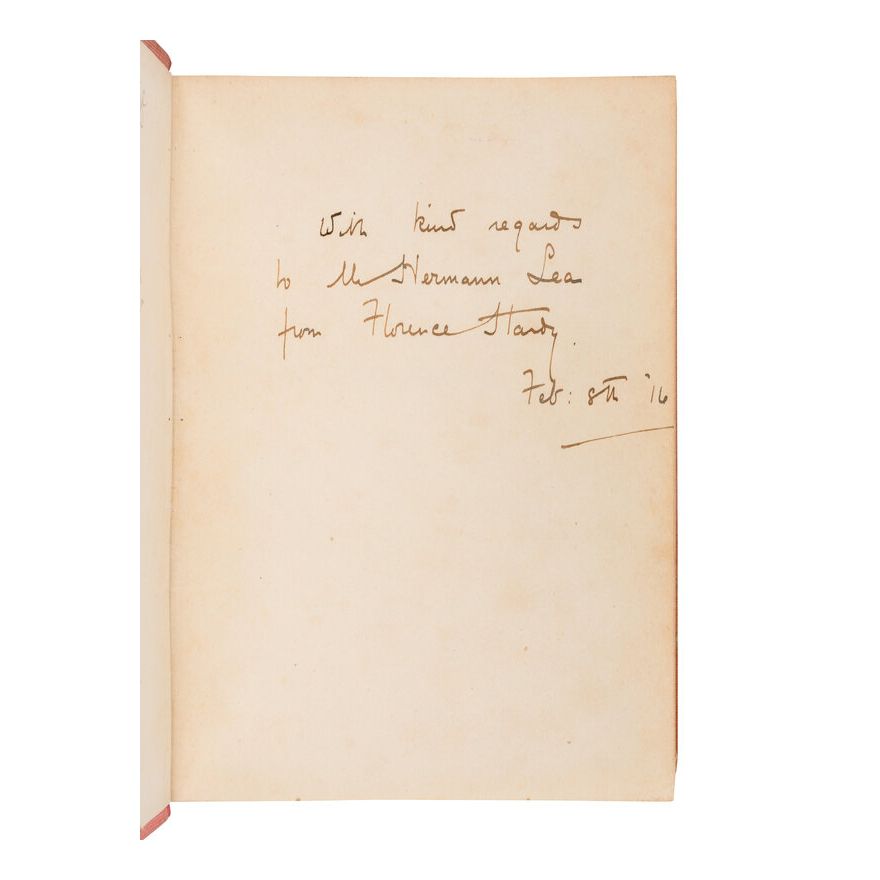 With kind regards
to Mr Hermann Lea
from Florence Hardy.
Feb: 8th '16